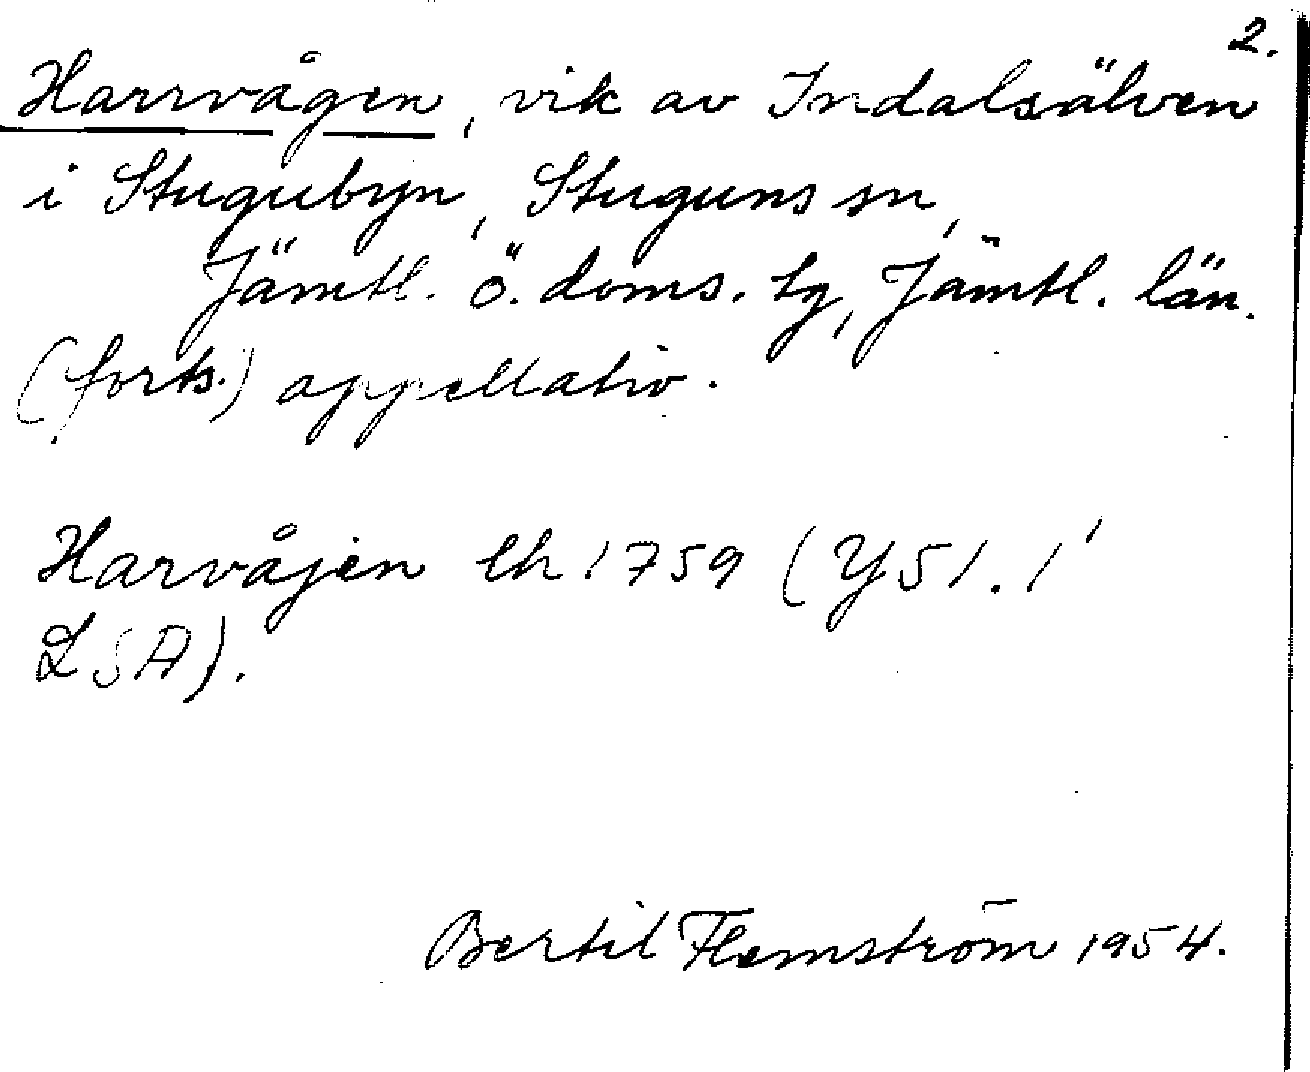 2.
Harrvågen, vik av Indalsälven
i Stugubyn, Stuguns sn,
Jämtl. ö. doms. tg, Jämtl. län.
(forts.) appellativ.
Harvåjen lh 1759 (Y51. 1'
LSA).
Bertil Flemström 1954.